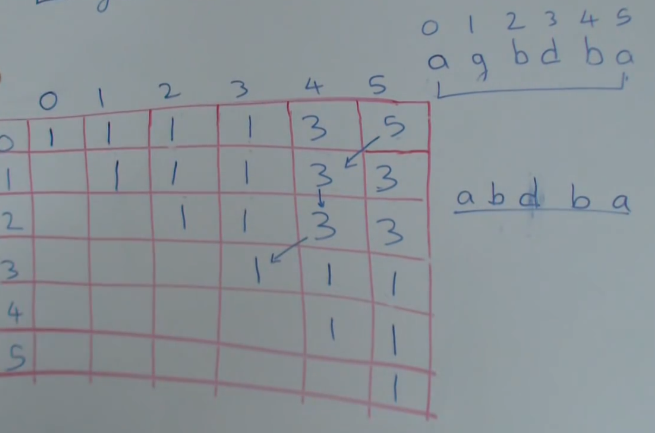 0 1 2 3 4 5
a g b d b a
0 1 2 3 4 5
0 1 1 1 1 3 5
1 1 1 1 3 3
2 1 1 3 3
a b d b a
3 1 1 1
4 1 1
5 1